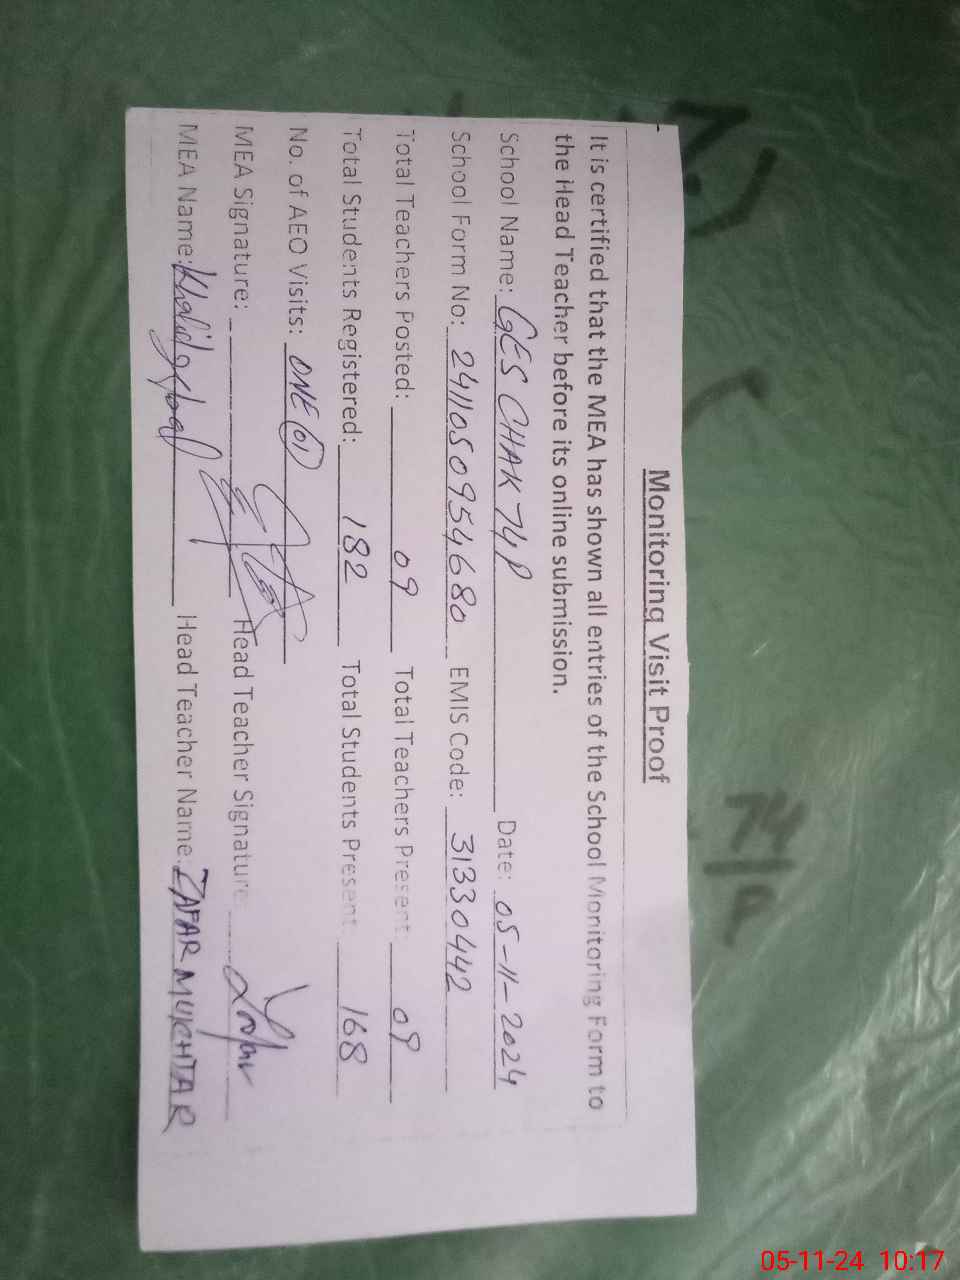 Monitoring Visit Proof
It is certified that the MEA has shown all entries of the School Monitoring Form to
the Head Teacher before its online submission.
School Name: GES CHAK 74P Date: 05-11-2024
School Form No: 2411050954680 EMIS Code: 31330442
Total Teachers Posted: 09 Total Teachers Present: 09
Total Students Registered: 182 Total Students Present: 168
No. of AEO Visits: ONE (01)
MEA Signature: Head Teacher Signature: Zafar
MEA Name: Khalid Iqbal Head Teacher Name: ZAFAR MUKHTAR
74/P
05-11-24 10:17